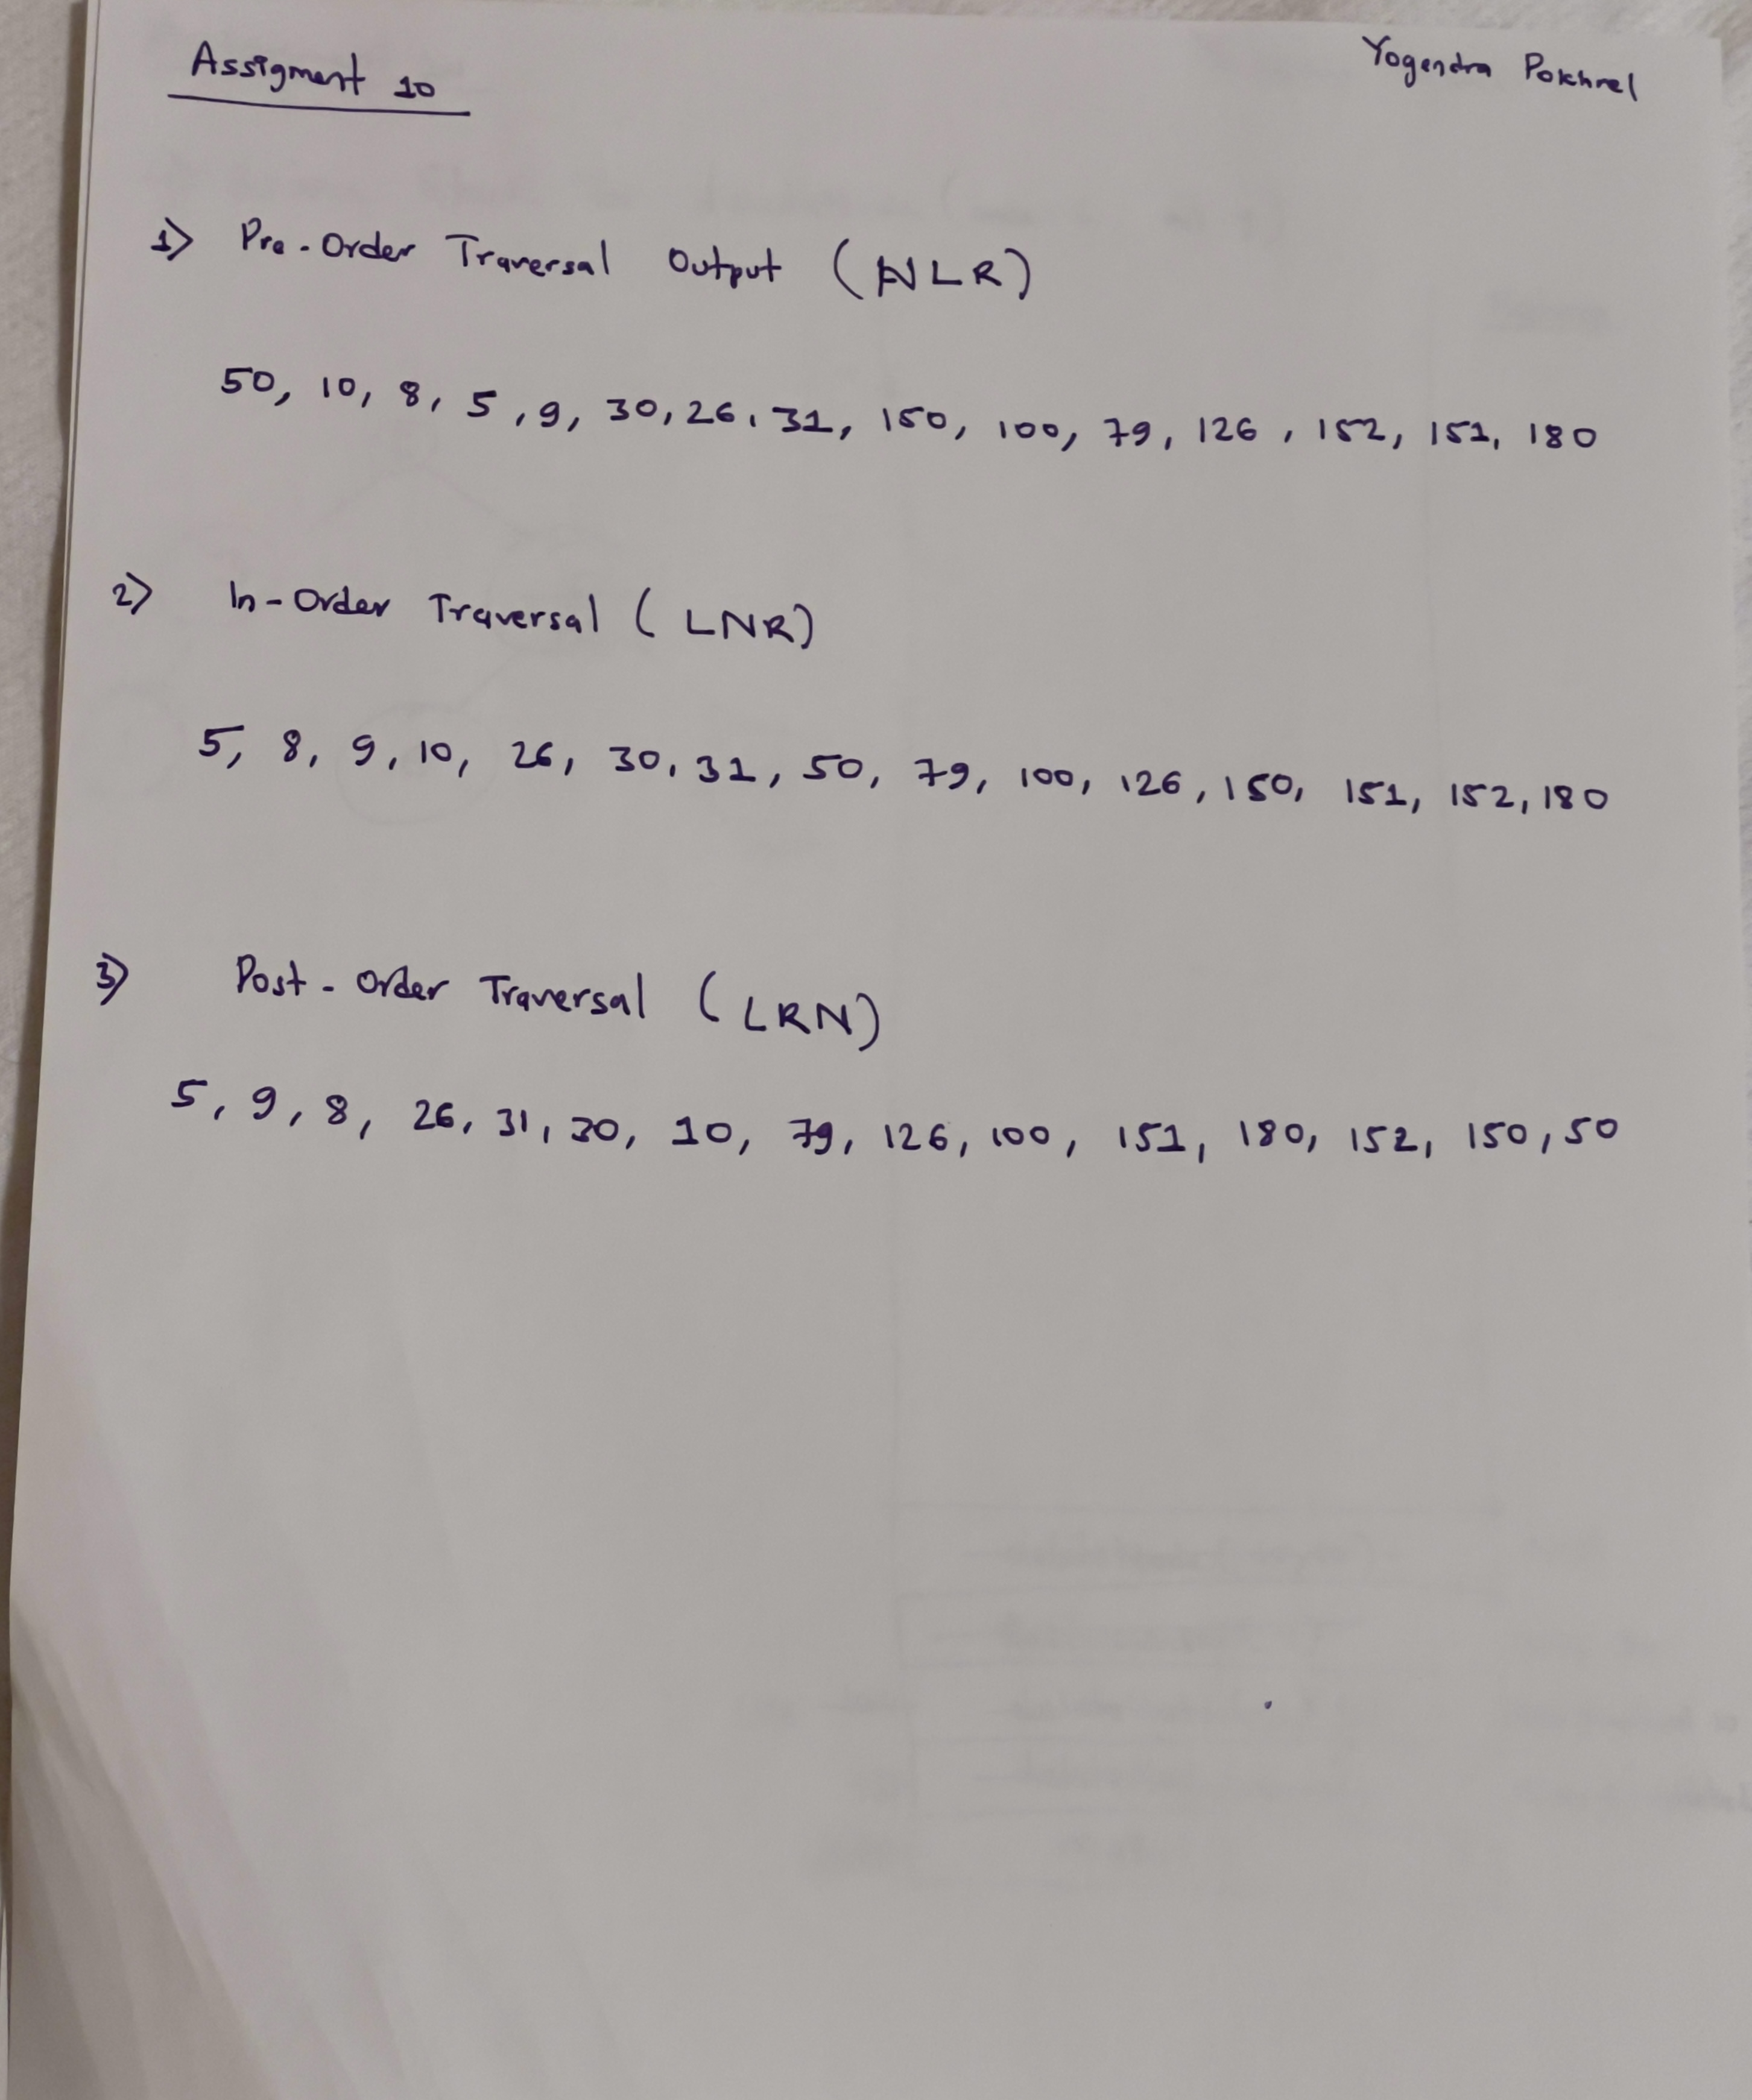 Assigment 10
Yogendra Pokhrel
1) Pre-Order Traversal Output (NLR)
50, 10, 8, 5, 9, 30, 26, 31, 150, 100, 79, 126, 152, 151, 180
2) In-Order Traversal (LNR)
5, 8, 9, 10, 26, 30, 31, 50, 79, 100, 126, 150, 151, 152, 180
3) Post-Order Traversal (LRN)
5, 9, 8, 26, 31, 30, 10, 79, 126, 100, 151, 180, 152, 150, 50